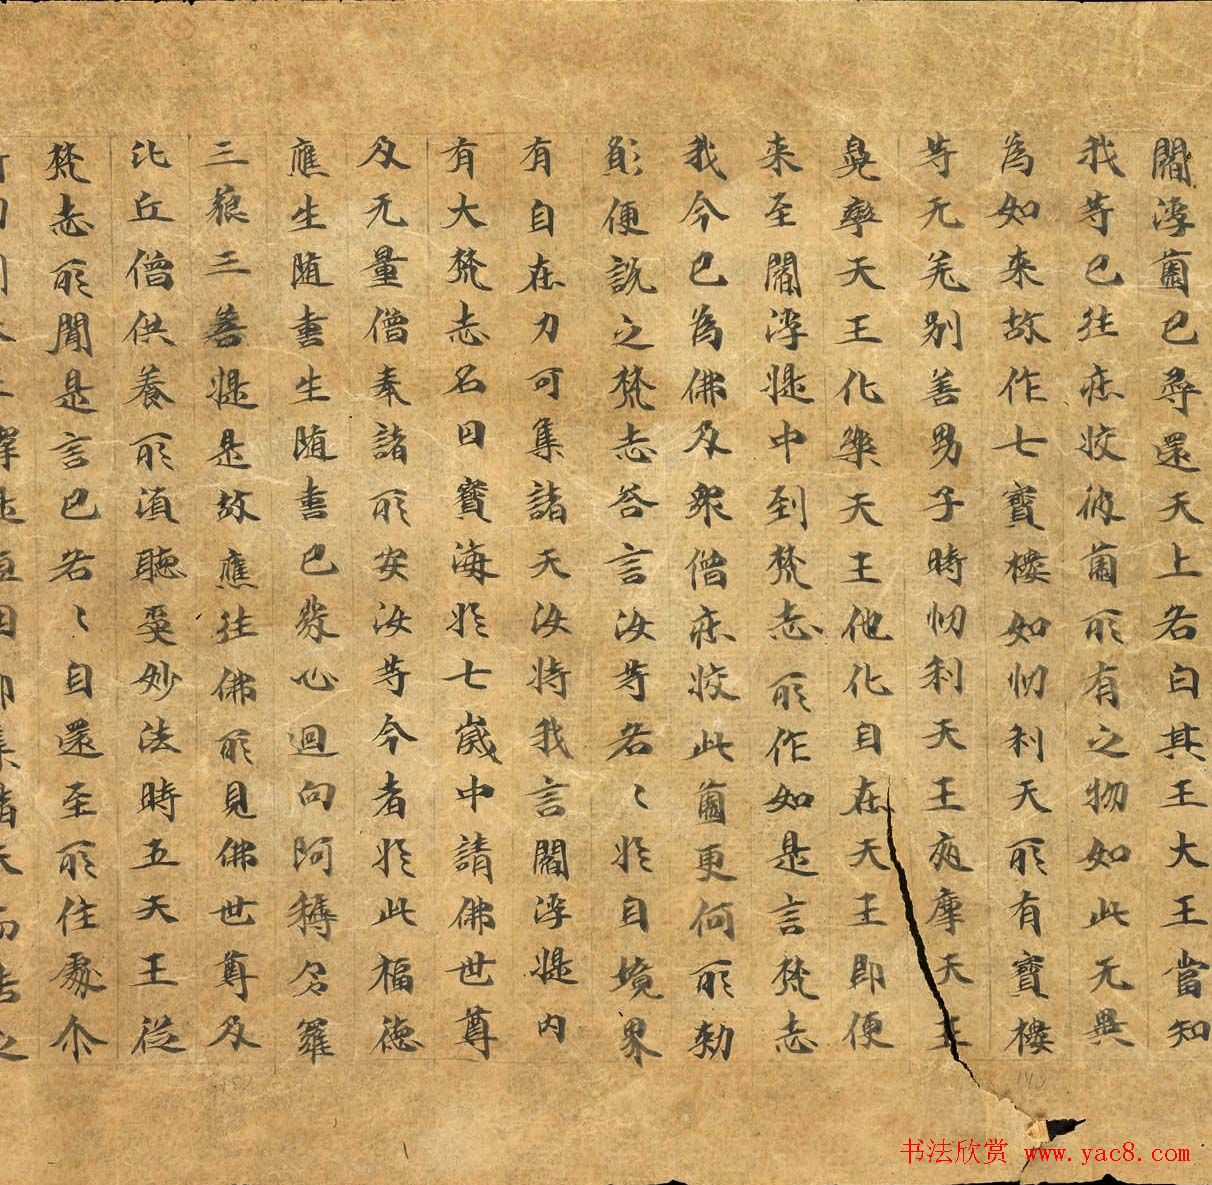 閻浮薗已尋還天上各白其王大王當知
我等已往莊挍彼薗所有之物如此无異
為如来故作七寶樓如忉利天所有寶樓
等无差別善男子時忉利天王夜摩天王
兜率天王化樂天王他化自在天王即便
来至閻浮提中到梵志所作如是言梵志
我今已為佛及眾僧莊挍此薗更何所勑
願便說之梵志荅言汝等各〻於自境界
有自在力可集諸天汝持我言閻浮提内
有大梵志名曰寶海於七歲中請佛世尊
及无量僧奉諸所安汝等今者於此福德
應生随喜生随喜已發心迴向阿耨多羅
三藐三菩提是故應往佛所見佛世尊及
比丘僧供養所湏聽受妙法時五天王從
梵志所聞是言已各〻自還至所住處尒
书法欣赏 www.yac8.com